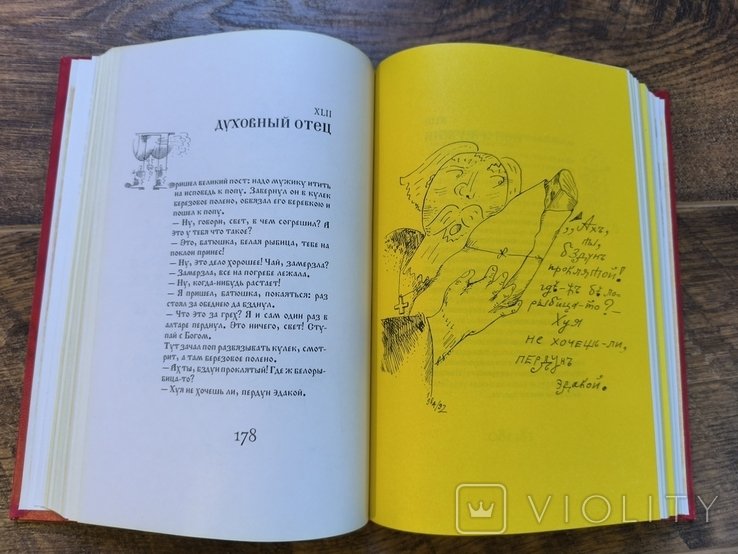 XLII
ДУХОВНЫЙ ОТЕЦ
Пришел великий пост: надо мужику итить
на исповедь к попу. Завернул он в кулек
березовое полено, обвязал его веревкою и
пошел к попу.
— Ну, говори, свет, в чем согрешил? А
это у тебя что такое?
— Это, батюшка, белая рыбица, тебе на
поклон принес!
— Ну, это дело хорошее! Чай, замерзла?
— Замерзла, все на погребе лежала.
— Ну, когда-нибудь растает!
— Я пришел, батюшка, покаяться: раз
стоял за обеднею да бзднул.
— Что это за грех? Я и сам один раз в
алтаре перднул. Это ничего, свет! Сту-
пай с Богом.
Тут зачал поп развязывать кулек, смот-
рит, а там березовое полено.
— Ах ты, бздун проклятый! Где ж белоры-
бица-то?
— Хуя не хочешь ли, пердун эдакой.
178
„Ахъ,
ты,
бздунъ
проклятой!
гдѣ-жъ бѣло-
рыбица-то?—
Хуя
не хочешь-ли,
пердунъ
эдакой.
VIOLITY